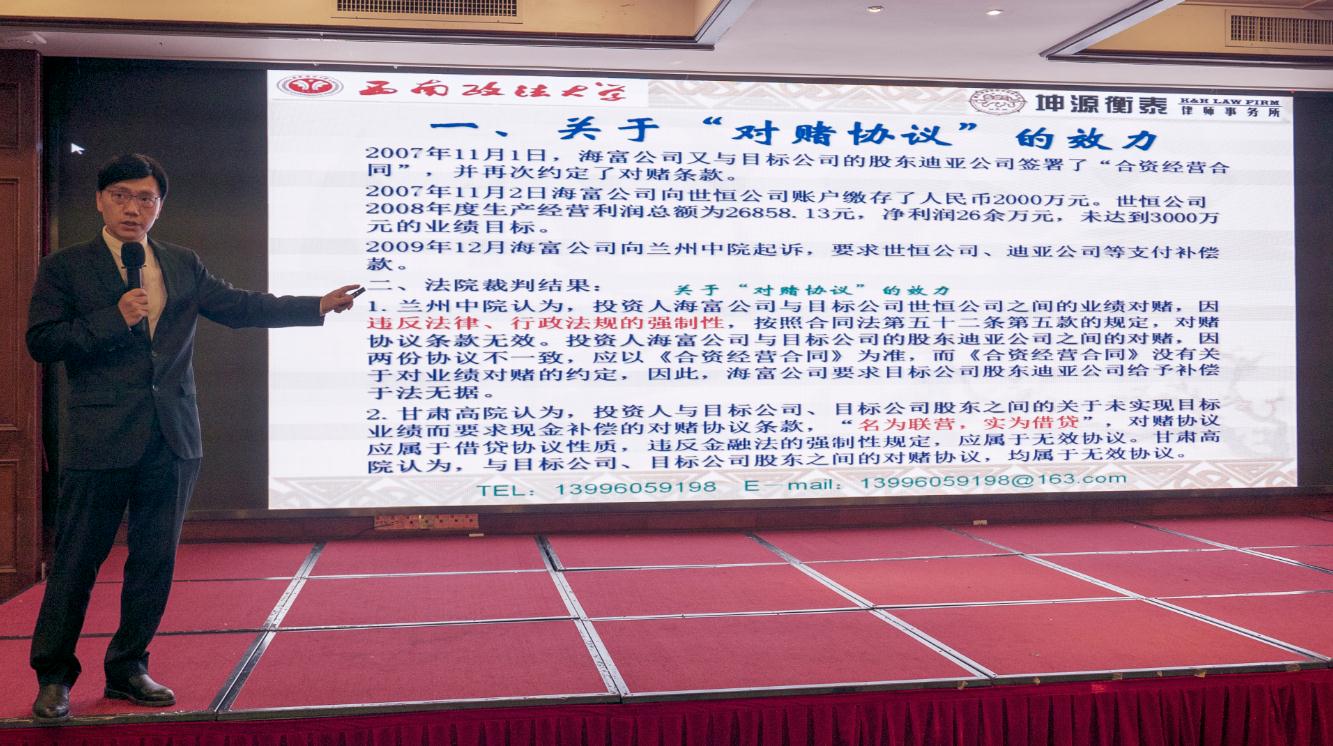 西南政法大学
坤源衡泰
K&H LAW FIRM
律师事务所
一、关于“对赌协议”的效力
2007年11月1日，海富公司又与目标公司的股东迪亚公司签署了“合资经营合
同”，并再次约定了对赌条款。
2007年11月2日海富公司向世恒公司账户缴存了人民币2000万元。世恒公司
2008年度生产经营利润总额为26858.13元，净利润26余万元，未达到3000万
元的业绩目标。
2009年12月海富公司向兰州中院起诉，要求世恒公司、迪亚公司等支付补偿
款。
二、法院裁判结果：
关于“对赌协议”的效力
1. 兰州中院认为，投资人海富公司与目标公司世恒公司之间的业绩对赌，因
违反法律、行政法规的强制性，按照合同法第五十二条第五款的规定，对赌
协议条款无效。投资人海富公司与目标公司的股东迪亚公司之间的对赌，因
两份协议不一致，应以《合资经营合同》为准，而《合资经营合同》没有关
于对业绩对赌的约定，因此，海富公司要求目标公司股东迪亚公司给予补偿
于法无据。
2. 甘肃高院认为，投资人与目标公司、目标公司股东之间的关于未实现目标
业绩而要求现金补偿的对赌协议条款，“名为联营，实为借贷”，对赌协议
应属于借贷协议性质，违反金融法的强制性规定，应属于无效协议。甘肃高
院认为，与目标公司、目标公司股东之间的对赌协议，均属于无效协议。
TEL：13996059198 E－mail：13996059198@163.com